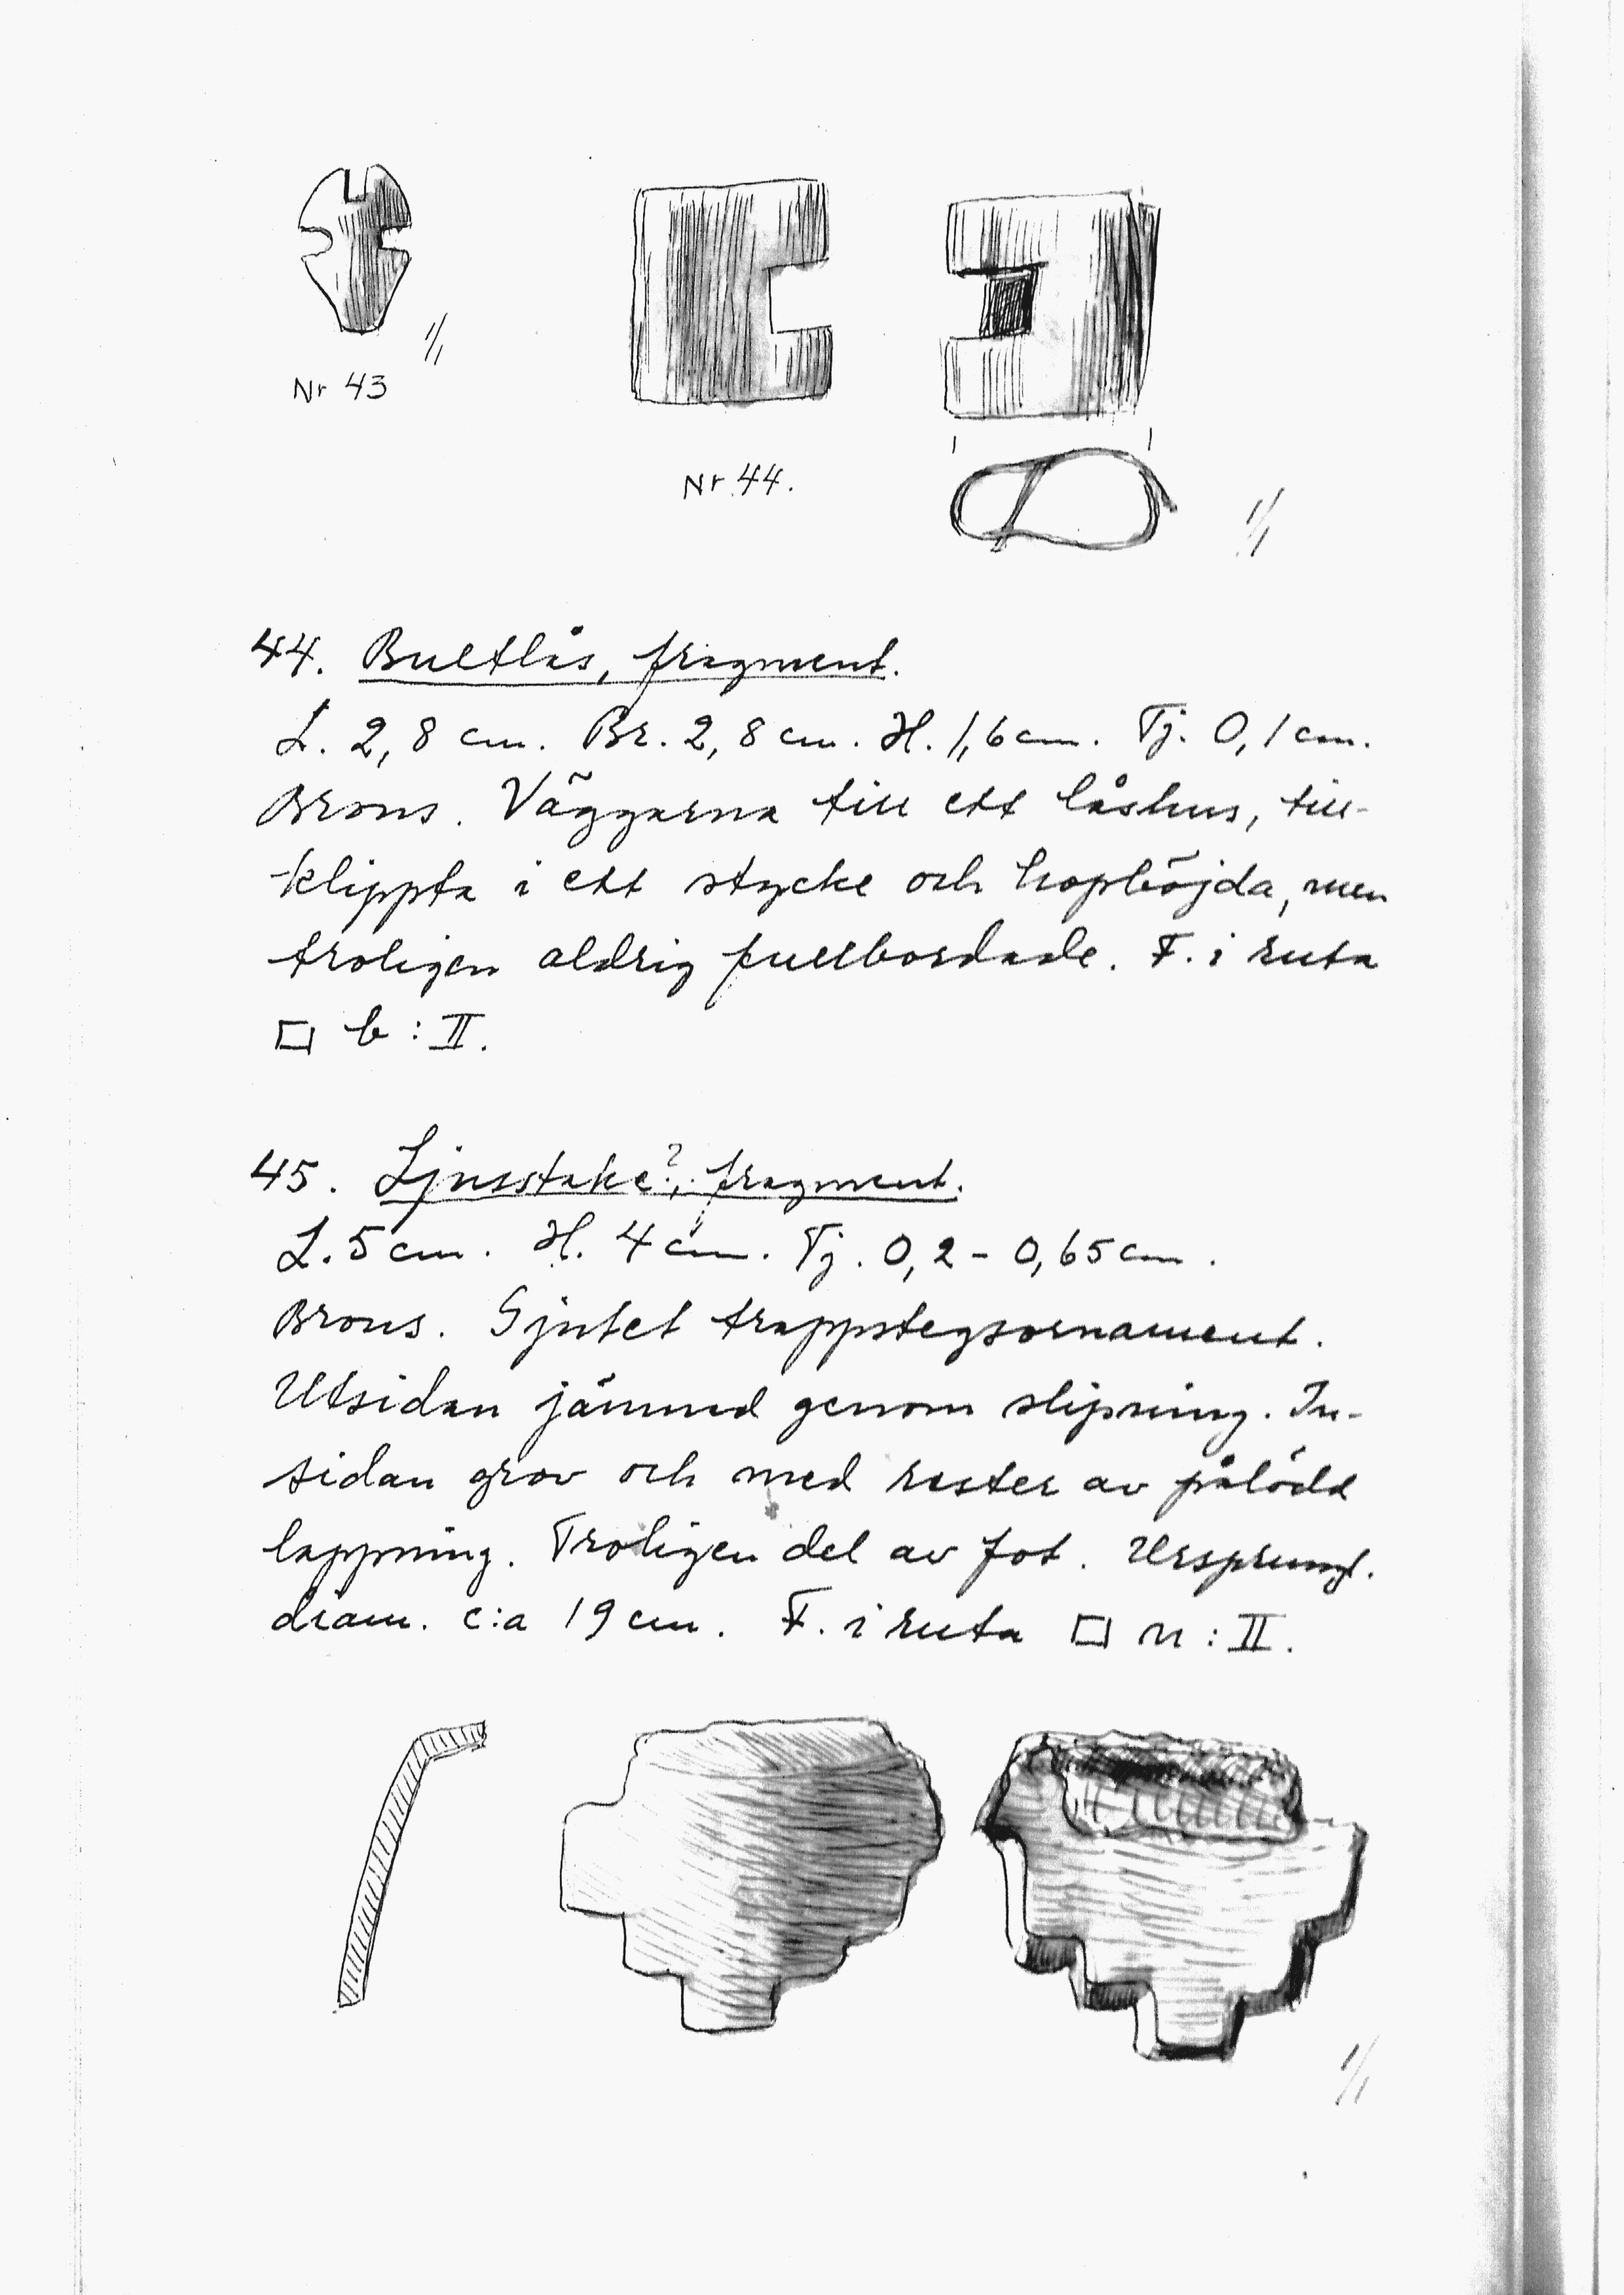 1/1
Nr 43
Nr 44.
1/1
44. Bultlås, fragment.
L. 2,8 cm. Br. 2,8 cm. H. 1,6 cm. Tj. 0,1 cm.
Brons. Väggarna till ett låshus, till-
klippta i ett stycke och hopböjda, men
troligen aldrig fullbordade. F. i ruta
□ b : II.
45. Ljusstake?, fragment.
L. 5 cm. H. 4 cm. Tj. 0,2 - 0,65 cm.
Brons. Gjutet trappstegsornament.
Utsidan jämnad genom slipning. In-
sidan grov och med rester av pålödd
lappning. Troligen del av fot. Ursprungl.
diam. c:a 19 cm. F. i ruta □ n : II.
1/1